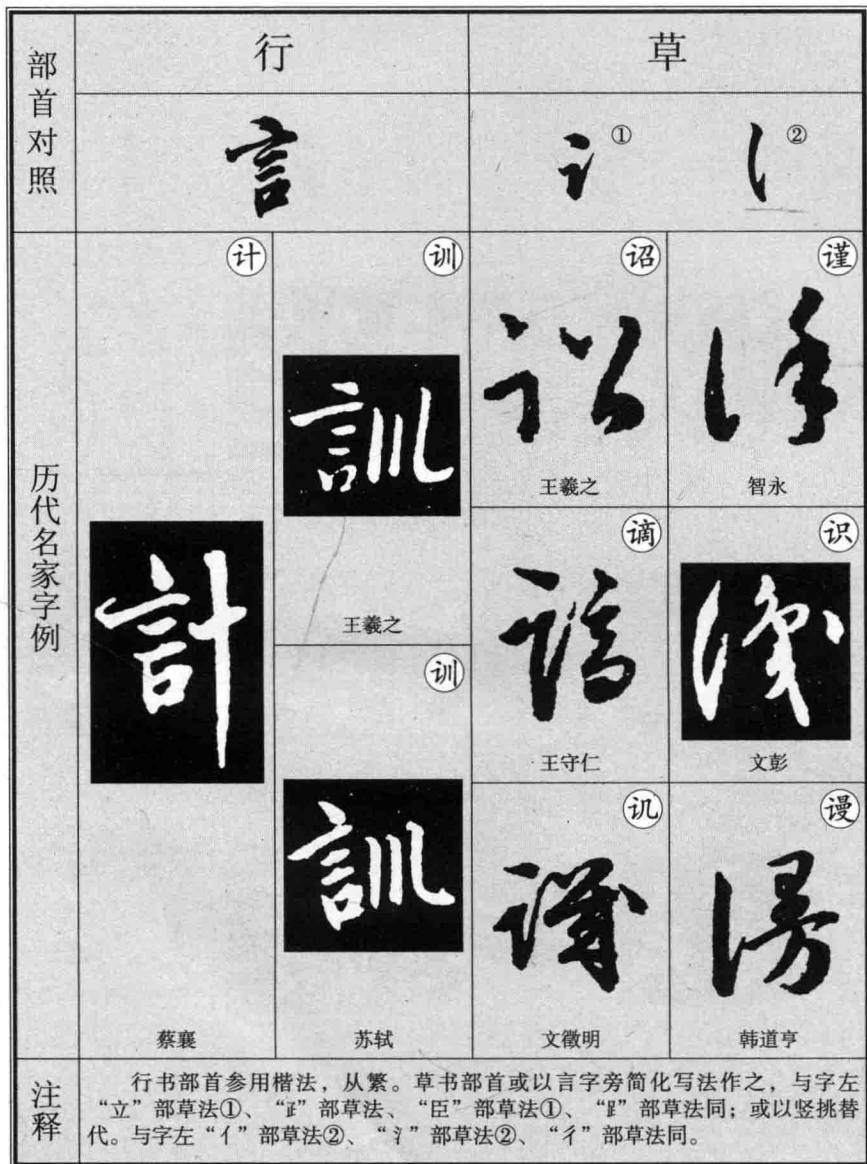 部首对照
行
草
言
讠①
②
历代名家字例
计
計
蔡襄
训
訓
王羲之
训
訓
苏轼
诏
诏
王羲之
谪
谪
王守仁
讥
譏
文徵明
谨
谨
智永
识
識
文彭
谩
谩
韩道亨
注释
行书部首参用楷法，从繁。草书部首或以言字旁简化写法作之，与字左
“立”部草法①、“”部草法、“臣”部草法①、“”部草法同；或以竖挑替
代。与字左“亻”部草法②、“氵”部草法②、“彳”部草法同。